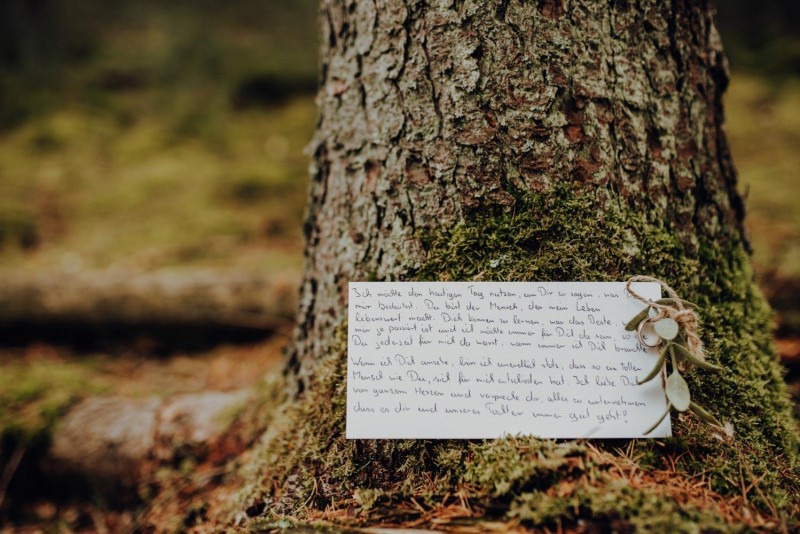 Ich möchte den heutigen Tag nutzen, um Dir zu sagen, was
mir bedeutet. Du bist der Mensch, der mein Leben
lebenswert macht. Dich kennen zu lernen, war das Beste
mir je passiert ist und ich möchte immer für Dich da sein, so
Du jederzeit für mich da warst, wann immer ich Dich brauchte
Wenn ich Dich ansehe, bin ich unendlich stolz, dass so ein toller
Mensch wie Du, sich für mich entschieden hat. Ich liebe Dich
von ganzem Herzen und verspreche dir, alles zu unternehmen
dass es dir und unserer Tochter immer gut geht!